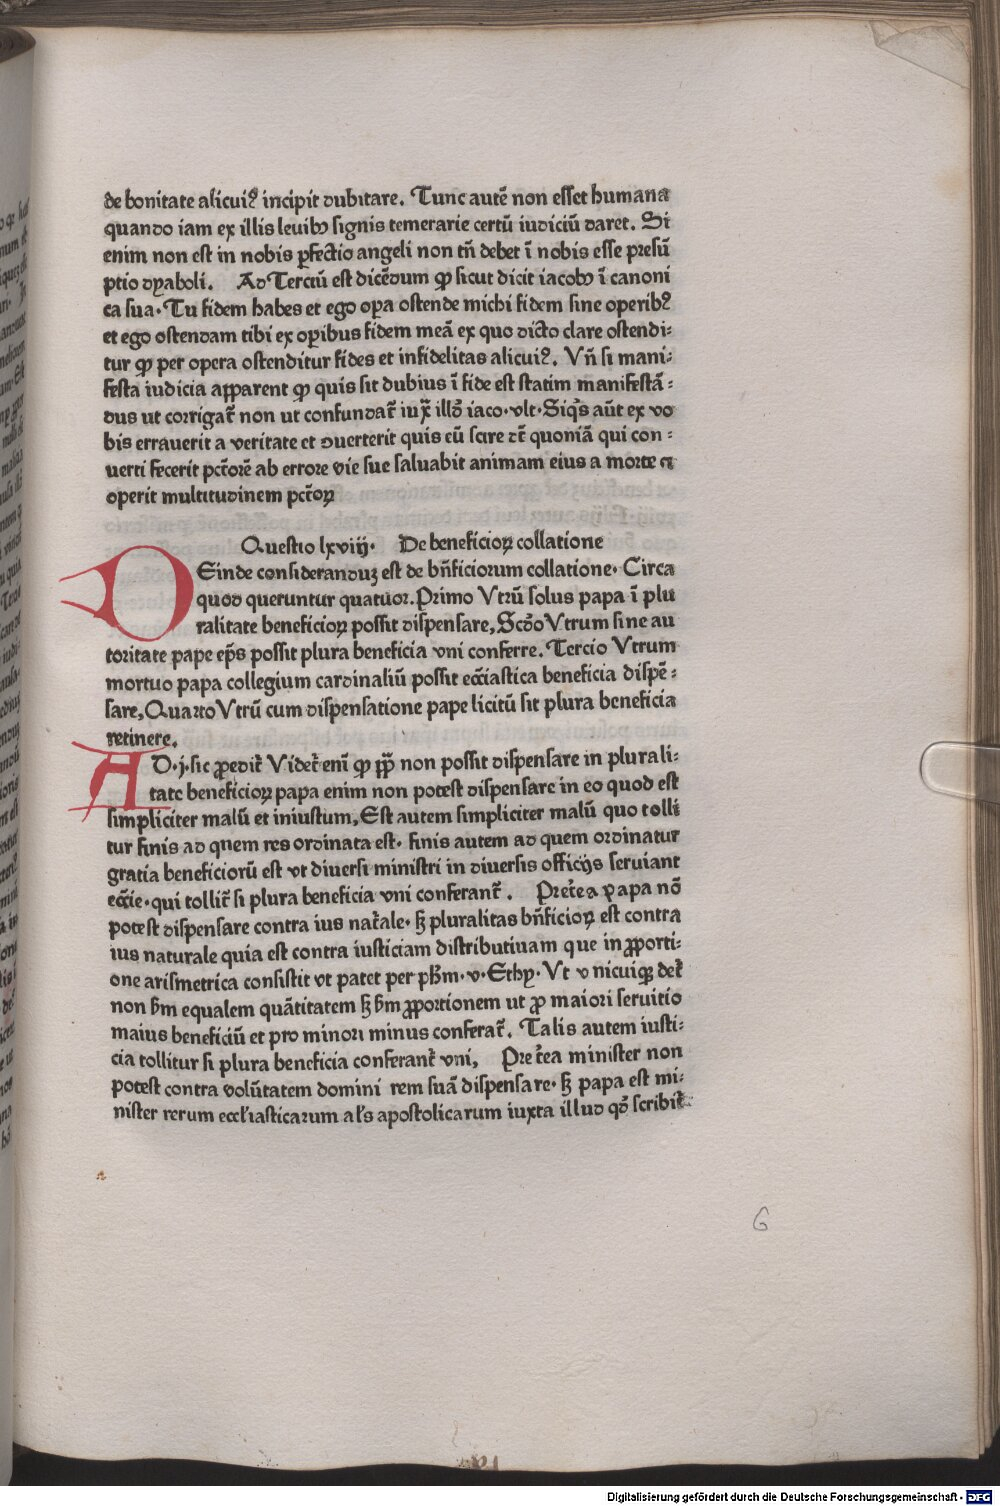 de bonitate alicuiꝰ incipit dubitare. Tunc autē non esset humana
quando iam ex illis leuibꝫ signis temerarie certū iudiciū daret. Si
enim non est in nobis ꝑfectio angeli non tn̄ debet ī nobis esse presū
ptio dyaboli. Ad Terciū est dicēdum ꝙ sicut dicit iacobꝫ ī canoni
ca sua. Tu fidem habes et ego oꝑa ostende michi fidem sine operibꝰ
et ego ostendam tibi ex oꝑibus fidem meā ex quo dicto clare ostendi⸗
tur ꝙ per opera ostenditur fides et infidelitas alicuiꝰ. Vn̄ si mani⸗
festa iudicia apparent ꝙ quis sit dubius ī fide est statim manifestā⸗
dus ut corrigat̄ non ut confundat̄ iux̄ illō iaco. vlt. Siqͥs aūt ex vo
bis errauerit a veritate et duerterit quis eū scire dꝫ quoniā qui con⸗
uerti fecerit pctōrē ab errore vie sue saluabit animam eius a morte et
operit multitudinem pctōꝝ
Questio lxviij. De beneficioꝝ collatione
DEinde consideranduꝫ est de bn̄ficiorum collatione. Circa
quod queruntur quatuor. Primo Vtrū solus papa ī plu
ralitate beneficioꝝ possit dispensare, Scd̄o Vtrum sine au
toritate pape ep̄s possit plura beneficia vni conferre. Tercio Vtrum
mortuo papa collegium cardinaliū possit ecc̄iastica beneficia dispē⸗
sare, Quarto Vtrū cum dispensatione pape licitū sit plura beneficia
retinere.
AD. j. sic ꝓcedit̄ Videt̄ enī ꝙ pp̄ non possit dispensare in plurali⸗
tate beneficioꝝ papa enim non potest dispensare in eo quod est
simpliciter malū et iniustum, Est autem simpliciter malū quo tolli
tur finis ad quem res ordinata est. finis autem ad quem ordinatur
gratia beneficiorū est vt diuersi ministri in diuersis officijs seruiant
ecc̄ie. qui tollit̄ si plura beneficia vni conferant̄. Pret̄ea papa nō
potest dispensare contra ius nat̄ale. sꝫ pluralitas bn̄ficioꝝ est contra
ius naturale quia est contra iusticiam distributiuam que in ꝓporti⸗
one arismetrica consistit vt patet per ph̄m. v. Ethy. Vt vnicuiqꝫ det̄
non s̄m equalem quātitatem sꝫ s̄m ꝓportionem ut ꝓ maiori seruitio
maius beneficiū et pro minori minus conferat̄. Talis autem iusti⸗
cia tollitur si plura beneficia conferant̄ vni, Pret̄ea minister non
potest contra volūtatem domini rem suā dispensare. sꝫ papa est mi⸗
nister rerum eccl̄iasticarum al̄s apostolicarum iuxta illud qd̄ scribit̄
G
Digitalisierung gefördert durch die Deutsche Forschungsgemeinschaft - DFG